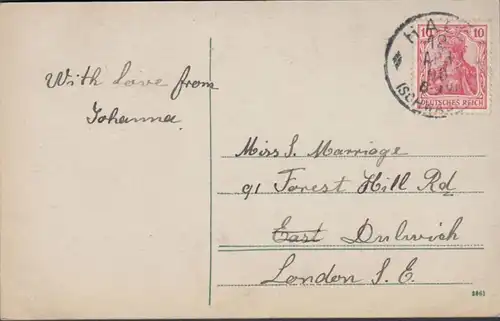 With love from
Johanna.
10 10
DEUTSCHES REICH
HA
12
Miss S. Marriage
91 Forest Hill Rd
East Dulwich
London S. E.